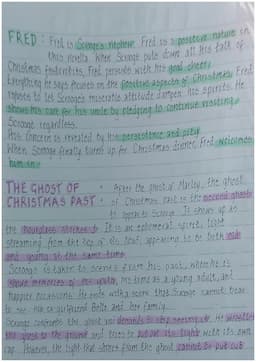 FRED: Fred is Scrooge's nephew. Fred is a positive nature in
this novella. When Scrooge puts down all his talk of
Christmas festivities, Fred persists with his good cheer.
Everything he says focuses on the positive aspects of Christmas. Fred
refuses to let Scrooge's miserable attitude dampen his spirits. He
shows his care for his uncle by pledging to continue visiting
Scrooge regardless.
His concern is revealed by his persistence and pity.
When Scrooge finally turns up for Christmas dinner, Fred welcomes
him in.
THE GHOST OF
CHRISTMAS PAST
After the ghost of Marley, the ghost
of Christmas past is the second ghost
to appear to Scrooge. It shows up as
the. It is an ephemeral spirit, light
streaming from the top of its head, appearing to be both old
and young at the same time.
Scrooge is taken to scenes from his past, where he is
memories of his youth, his time as a young adult, and
happier occasions. He ends with a scene that Scrooge cannot bear
to see his ex girlfriend Belle and her family.
Scrooge confronts the ghost and demands to. He wrestles
the ghost to the ground and tries to its light with its own
cap. However, the light that shines from the ghost cannot be put out